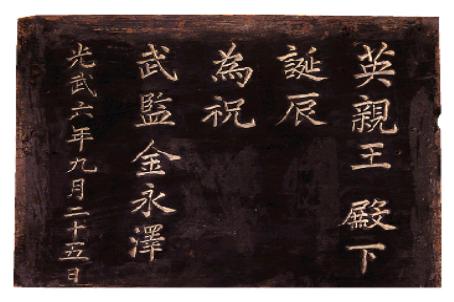 英親王 殿下
誕辰
為祝
武監金永澤
光武六年九月二十五日